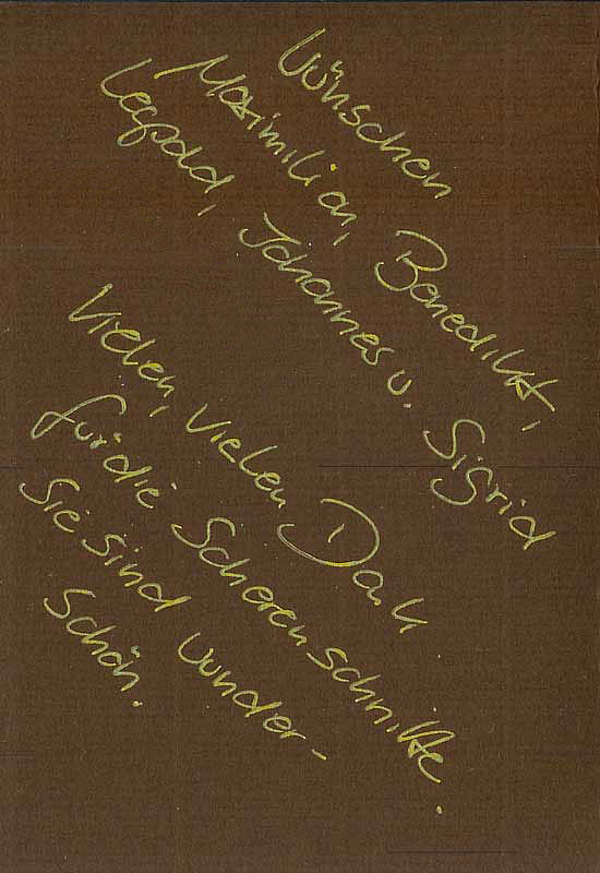 Wünschen
Maximilian, Benedikt,
Leopold, Johannes u. Sigrid
Vielen, vielen Dank
für die Scherenschnitte.
Sie sind wunder-
schön.